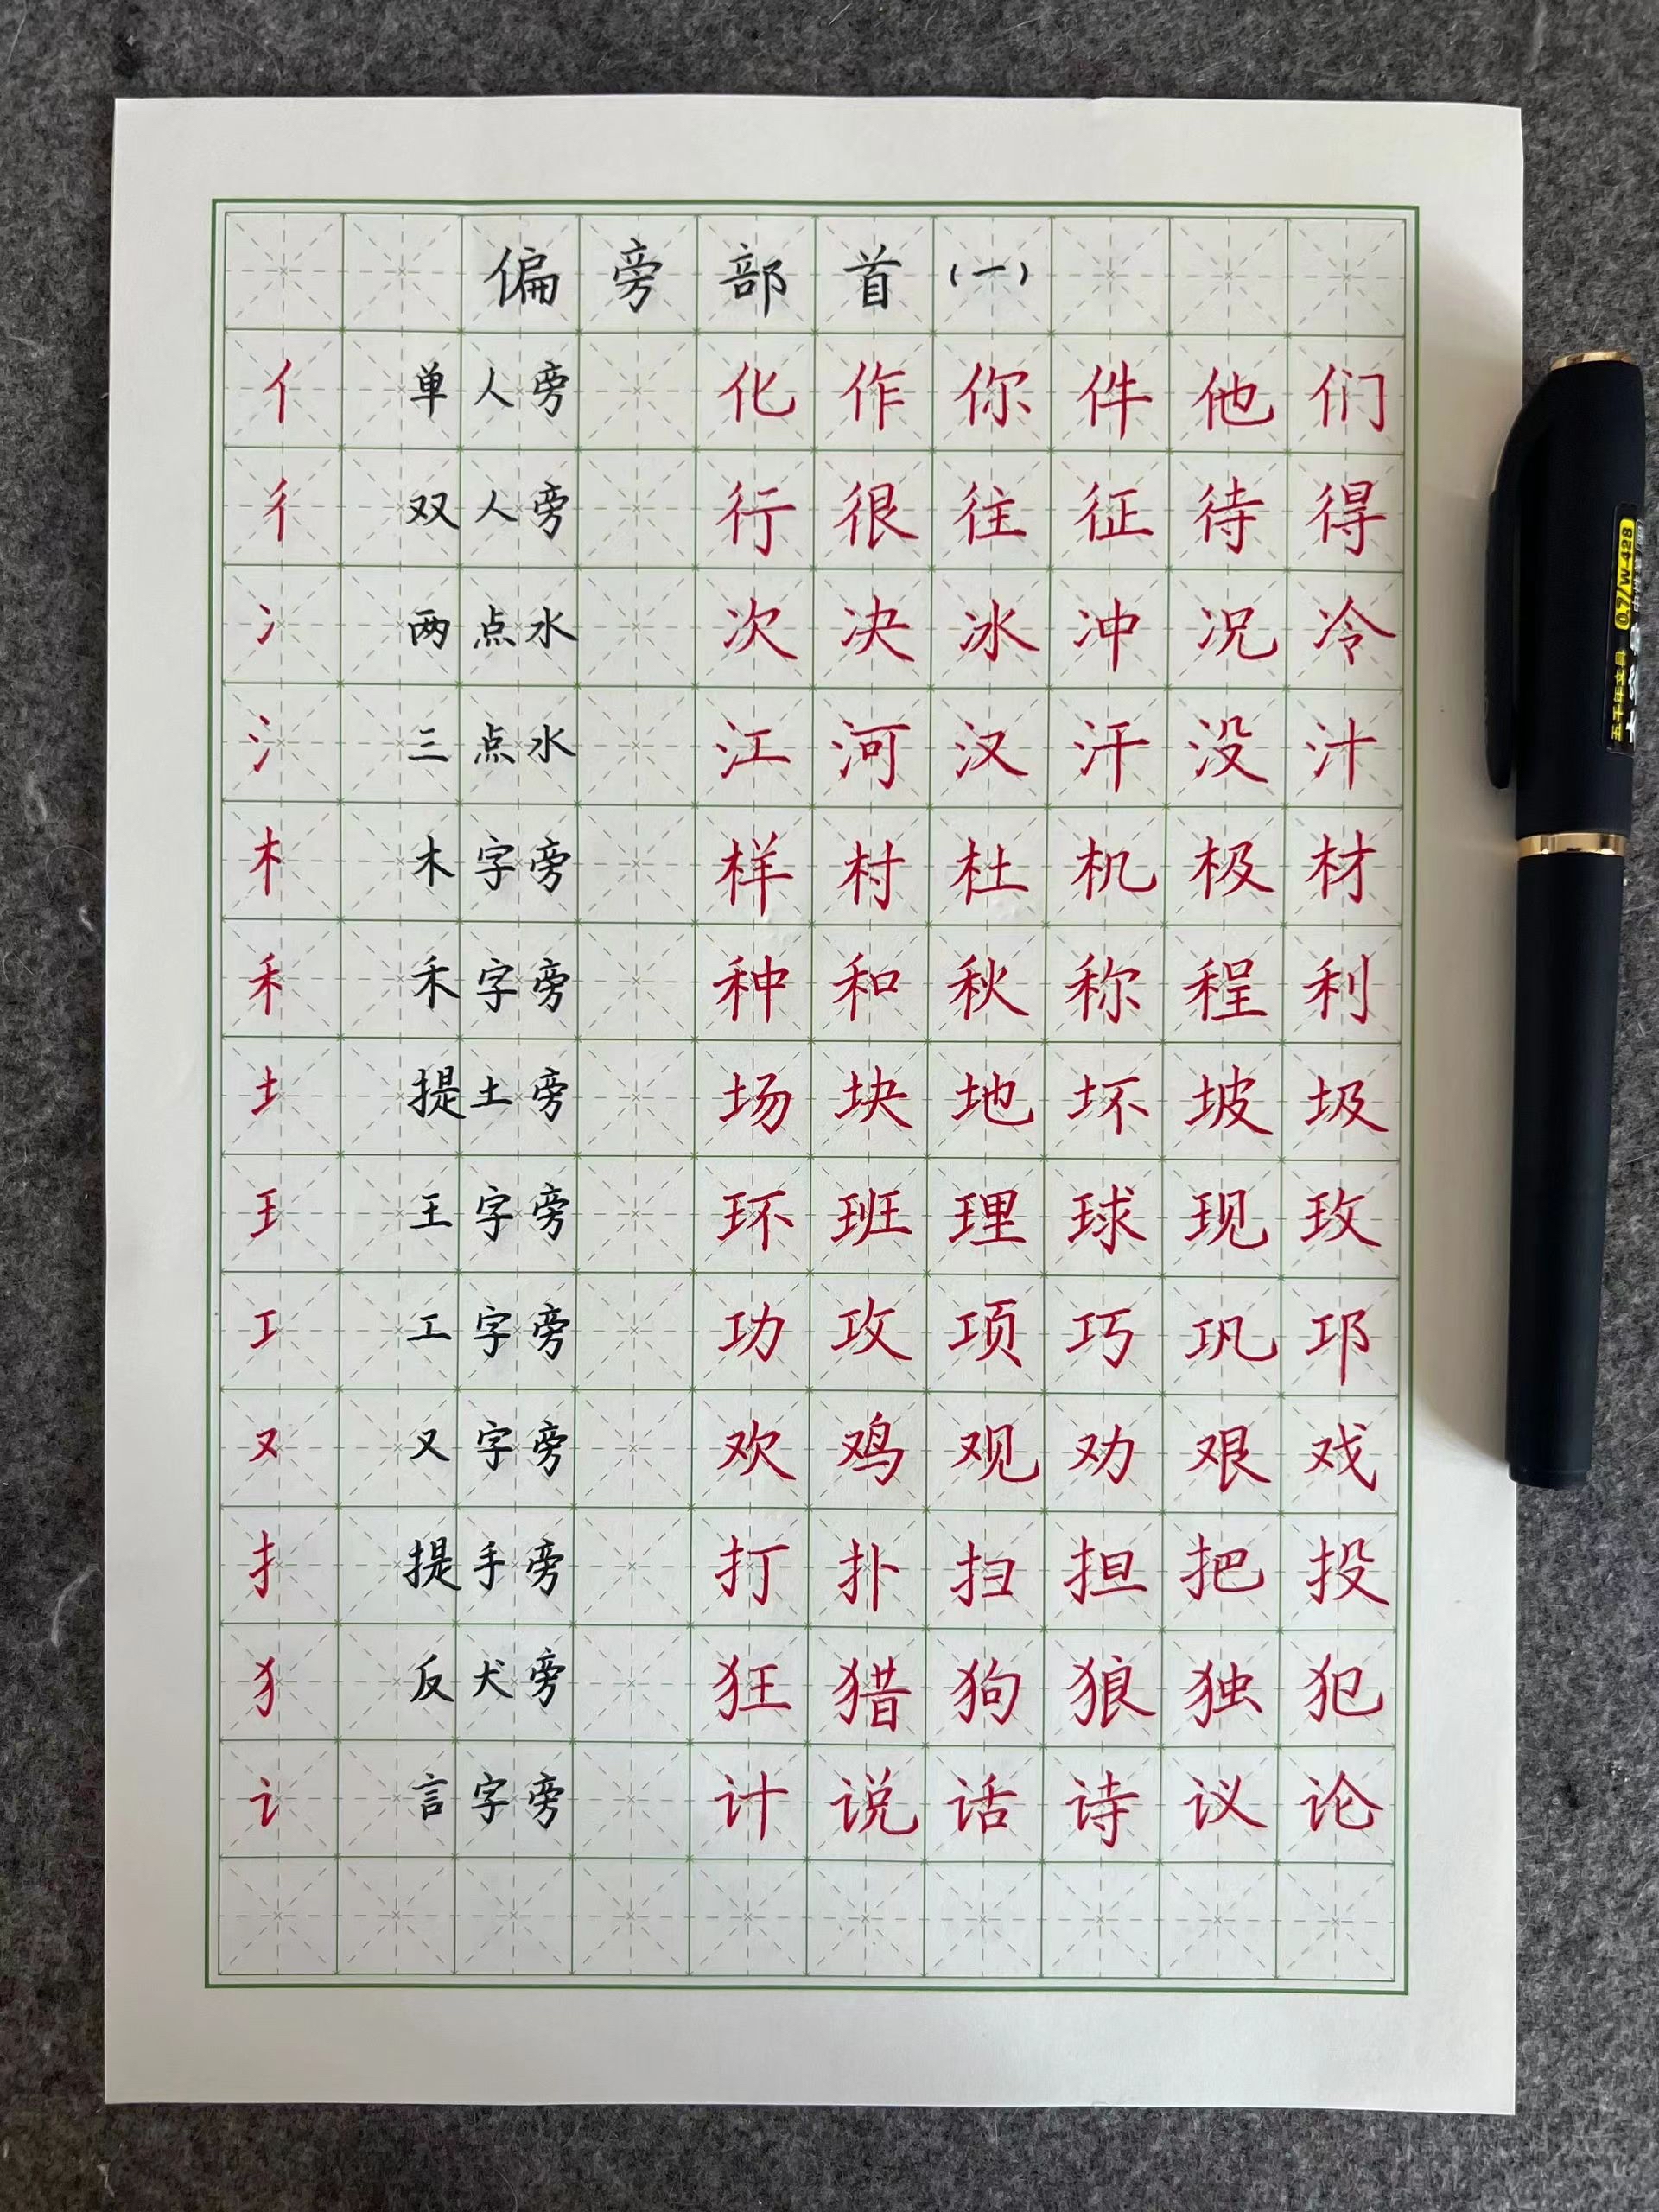 偏旁部首（一）
亻 单人旁 化作你件他们
彳 双人旁 行很往征待得
冫 两点水 次决冰冲况冷
氵 三点水 江河汉汗没汁
木 木字旁 样村杜机极材
禾 禾字旁 种和秋称程利
土 提土旁 场块地坏坡圾
王 王字旁 环班理球现玫
工 工字旁 功攻项巧巩邛
又 又字旁 欢鸡观劝艰戏
扌 提手旁 打扑扫担把投
犭 反犬旁 狂猎狗狼独犯
讠 言字旁 计说话诗议论
0.7/W-428
五千年文具